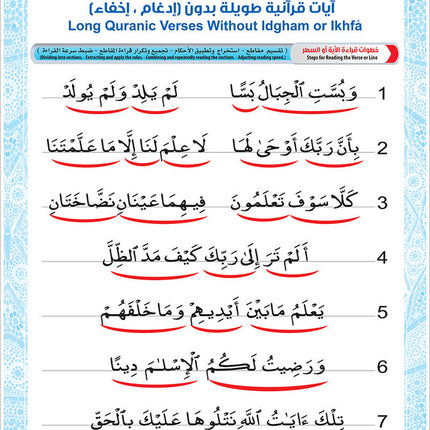 آيات قرآنية طويلة بدون (إدغام ، إخفاء)
Long Quranic Verses Without Idgham or Ikhfâ
خطوات قراءة الآية أو السطر
Steps for Reading the Verse or Line
( تقسيم مقاطع - استخراج وتطبيق الأحكام - تجميع وتكرار قراءة المقاطع - ضبط سرعة القراءة )
(Dividing into sections. - Extracting and apply the rules. - Combining and repeatedly reading the sections. - Adjusting reading speed.)
1 وَبُسَّتِ الْجِبَالُ بَسًّا لَمْ يَلِدْ وَلَمْ يُولَدْ
2 بِأَنَّ رَبَّكَ أَوْحَىٰ لَهَا لَا عِلْمَ لَنَا إِلَّا مَا عَلَّمْتَنَا
3 كَلَّا سَوْفَ تَعْلَمُونَ فِيهِمَا عَيْنَانِ نَضَّاخَتَانِ
4 أَلَمْ تَرَ إِلَىٰ رَبِّكَ كَيْفَ مَدَّ الظِّلَّ
5 يَعْلَمُ مَا بَيْنَ أَيْدِيهِمْ وَمَا خَلْفَهُمْ
6 وَرَضِيتُ لَكُمُ الْإِسْلَٰمَ دِينًا
7 تِلْكَ ءَايَٰتُ اللَّهِ نَتْلُوهَا عَلَيْكَ بِالْحَقِّ